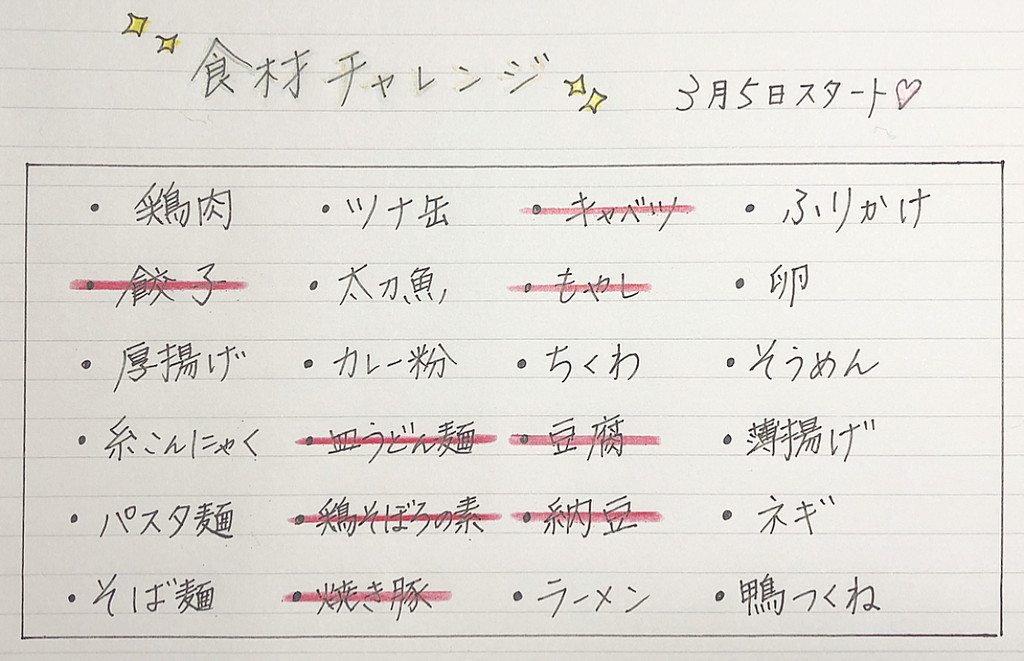 食材チャレンジ 3月5日スタート♡
・鶏肉 ・ツナ缶 ・キャベツ ・ふりかけ
・餃子 ・太刀魚 ・もやし ・卵
・厚揚げ ・カレー粉 ・ちくわ ・そうめん
・糸こんにゃく ・皿うどん麺 ・豆腐 ・薄揚げ
・パスタ麺 ・鶏そぼろの素 ・納豆 ・ネギ
・そば麺 ・焼き豚 ・ラーメン ・鴨つくね